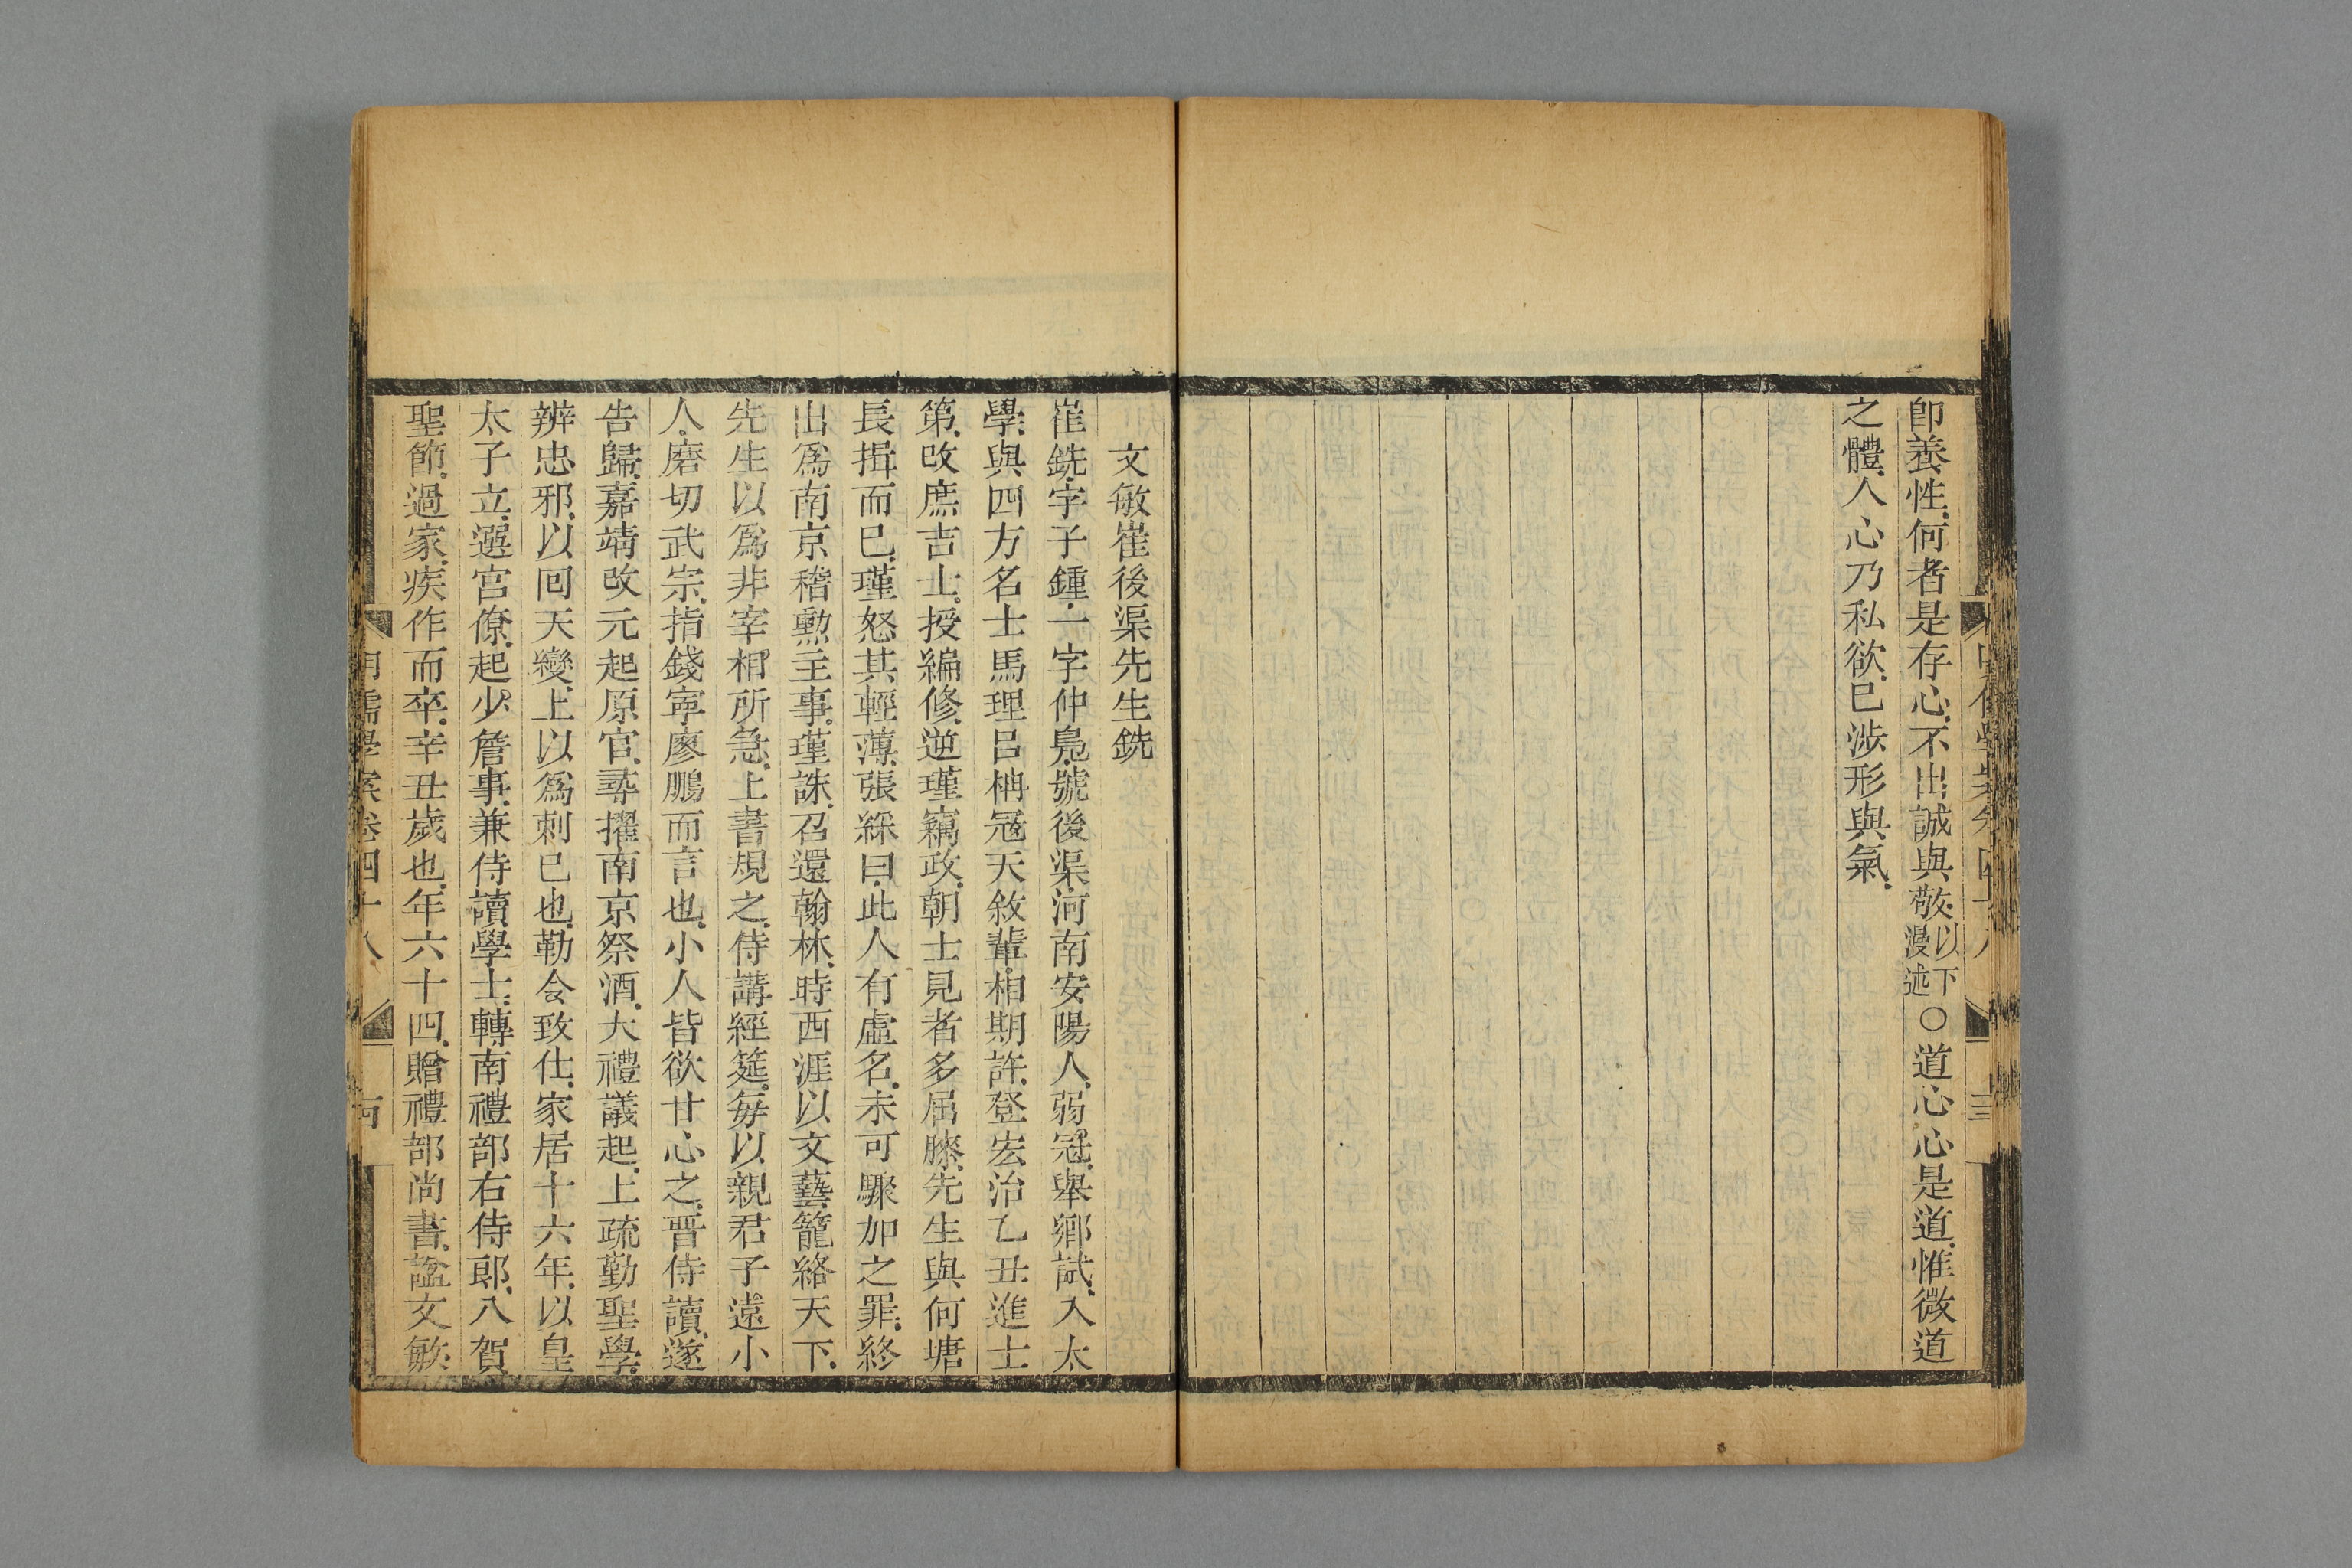 卽養性.何者是存心.不出誠與敬.以下漫述○道心心是道.惟微道
之體.人心乃私欲.已涉形與氣.
文敏崔後渠先生銑
崔銑.字子鍾.一字仲鳧.號後渠.河南安陽人.弱冠.舉鄉試.入太
學.與四方名士馬理呂柟冦天敘輩.相期許.登宏治乙丑進士
第.改庶吉士.授編修.逆瑾竊政.朝士見者多屈膝.先生與何塘
長揖而已.瑾怒其輕薄.張綵曰.此人有虛名.未可驟加之罪.終
出爲南京稽勳主事.瑾誅.召還翰林.時西涯以文藝籠絡天下.
先生以爲非宰相所急.上書規之.侍講經筵.每以親君子遠小
人.磨切武宗.指錢寧廖鵬而言也.小人皆欲甘心之.晋侍讀.遂
告歸.嘉靖改元起原官.尋擢南京祭酒.大禮議起.上疏勤聖學.
辨忠邪.以囘天變.上以爲刺已也.勒令致仕.家居十六年.以皇
太子立.選宮僚.起少詹事.兼侍讀學士.轉南禮部右侍郎.入賀
聖節.過家.疾作而卒.辛丑歲也.年六十四.贈禮部尚書.謚文敏.
明儒學案卷四十八